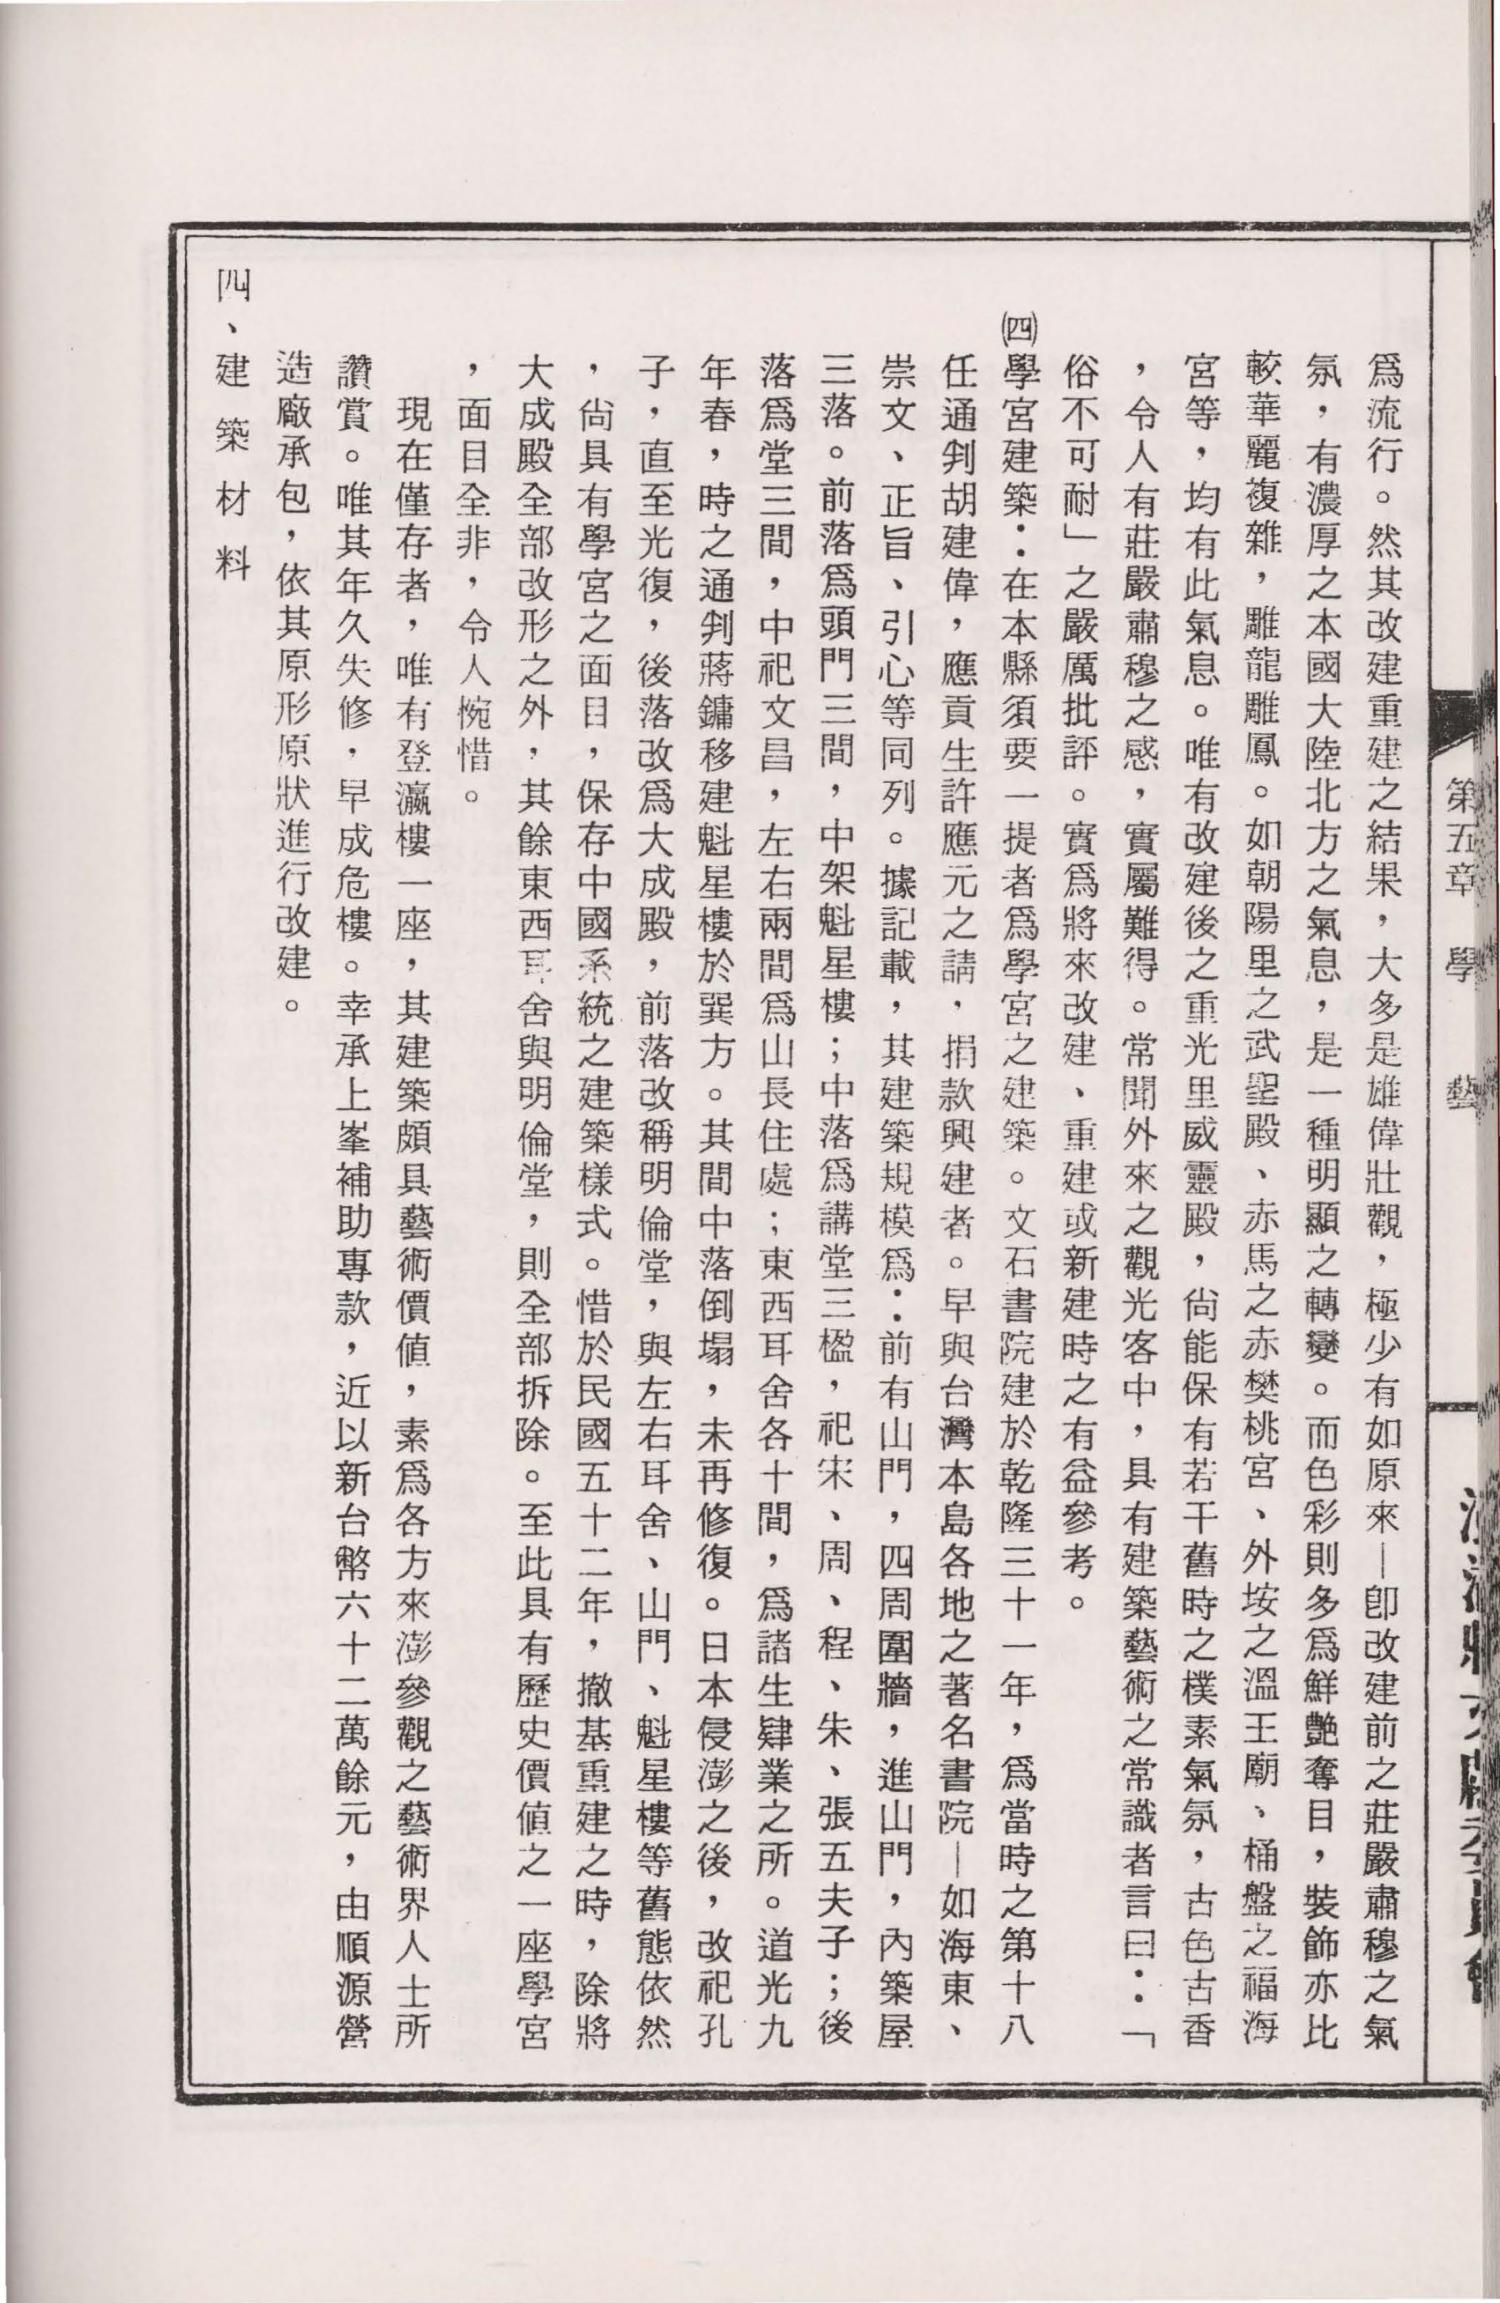 第五章 學 藝
為流行。然其改建重建之結果，大多是雄偉壯觀，極少有如原來—卽改建前之莊嚴肅穆之氣
氛，有濃厚之本國大陸北方之氣息，是一種明顯之轉變。而色彩則多為鮮艷奪目，裝飾亦比
較華麗複雜，雕龍雕鳳。如朝陽里之武聖殿、赤馬之赤樊桃宮、外垵之溫王廟、桶盤之福海
宮等，均有此氣息。唯有改建後之重光里威靈殿，尙能保有若干舊時之樸素氣氛，古色古香
，令人有莊嚴肅穆之感，實屬難得。常聞外來之觀光客中，具有建築藝術之常識者言曰：「
俗不可耐」之嚴厲批評。實為將來改建、重建或新建時之有益參考。
㈣學宮建築：在本縣須要一提者為學宮之建築。文石書院建於乾隆三十一年，為當時之第十八
任通判胡建偉，應貢生許應元之請，捐款興建者。早與台灣本島各地之著名書院—如海東、
崇文、正旨、引心等同列。據記載，其建築規模為：前有山門，四周圍牆，進山門，內築屋
三落。前落為頭門三間，中架魁星樓；中落為講堂三楹，祀宋、周、程、朱、張五夫子；後
落為堂三間，中祀文昌，左右兩間為山長住處；東西耳舍各十間，為諸生肄業之所。道光九
年春，時之通判蔣鏞移建魁星樓於巽方。其間中落倒塌，未再修復。日本侵澎之後，改祀孔
子，直至光復，後落改為大成殿，前落改稱明倫堂，與左右耳舍、山門、魁星樓等舊態依然
，尙具有學宮之面目，保存中國系統之建築樣式。惜於民國五十二年，撤基重建之時，除將
大成殿全部改形之外，其餘東西耳舍與明倫堂，則全部拆除。至此具有歷史價値之一座學宮
，面目全非，令人惋惜。
現在僅存者，唯有登瀛樓一座，其建築頗具藝術價値，素為各方來澎參觀之藝術界人士所
讚賞。唯其年久失修，早成危樓。幸承上峯補助專款，近以新台幣六十二萬餘元，由順源營
造廠承包，依其原形原狀進行改建。
四、建築材料